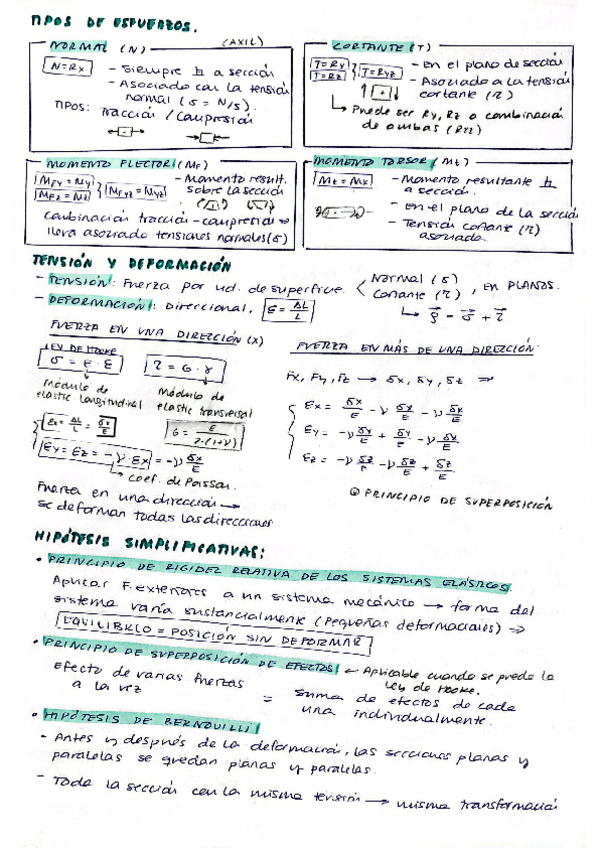 TIPOS DE ESFUERZOS.
NORMAL (N) (AXIL)
N=Rx
- Siempre ⊥ a sección
- Asociado con la tensión normal (σ = N/S).
TIPOS: Tracción / Compresión
CORTANTE (T)
T=Ry
T=Rz
T=Ryz
- En el plano de sección
- Asociado a la tensión cortante (τ)
↳ Puede ser Ry, Rz o combinación
de ambas (Ryz)
MOMENTO FLECTOR (Mf)
MFy = My
MFz = Mz
MFyz = Myz
- Momento result. sobre la sección
combinación tracción - compresión ⇒
lleva asociado tensiones normales (σ)
MOMENTO TORSOR (Mt)
Mt = Mx
- Momento resultante ⊥
a sección.
- En el plano de la sección
- Tensión cortante (τ)
asociada.
TENSIÓN Y DEFORMACIÓN
- TENSIÓN: Fuerza por ud. de superficie. < Normal (σ) Cortante (τ), EN PLANOS.
- DEFORMACIÓN: Direccional, ε = ΔL/L
FUERZA EN UNA DIRECCIÓN (X)
LEY DE HOOKE
σ = E · ε
τ = G · γ
Módulo de
elastic longitudinal
Módulo de
elastic transversal
εx = ΔL/L = σx/E
G = E/2·(1+ν)
εy = εz = -ν · εx = -ν σx/E
↳ Coef. de Poisson.
Fuerza en una dirección →
se deforman todas las direcciones
FUERZA EN MÁS DE UNA DIRECCIÓN:
Fx, Fy, Fz → σx, σy, σz ⇒
εx = σx/E - ν σy/E - ν
εy = -ν σx/E + σy/E - ν
εz = -ν - ν + σz/E
PRINCIPIO DE SUPERPOSICIÓN
HIPÓTESIS SIMPLIFICATIVAS:
• PRINCIPIO DE RIGIDEZ RELATIVA DE LOS SISTEMAS ELÁSTICOS.
Aplicar F. exteriores a un sistema mecánico → forma del
sistema varía sustancialmente (Pequeñas deformaciones) ⇒
EQUILIBRIO = POSICIÓN SIN DEFORMAR
• PRINCIPIO DE SUPERPOSICIÓN DE EFECTOS ← Aplicable cuando se preda la
ley de Hooke.
Efecto de varias fuerzas
a la vez
= suma de efectos de cada
una individualmente.
• HIPÓTESIS DE BERNOUILLI
- Antes y después de la deformación, las secciones planas y
paralelas se quedan planas y paralelas.
- Toda la sección con la misma tensión → misma transformación